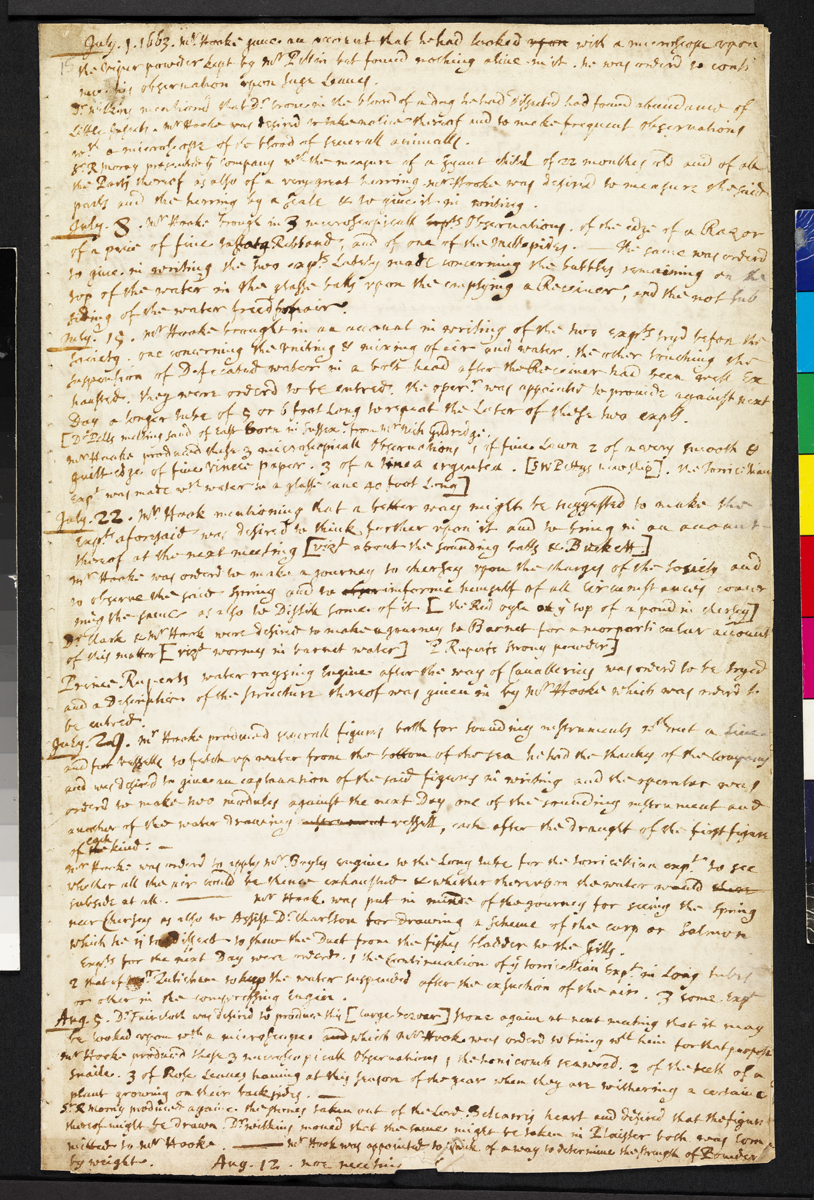 July. 1. 1663. Mr. Hooke gave an account that he had looked upon with a microscope upon
the viper powder kept by Mr Pellin but found nothing alive in it. he was orderd to conti
nue his observation upon Sage Leaves.
Dr. Wilkins mentiond that Dr. in the blood of a dog he had dissected had found abundance of
Little Insects. Mr Hooke was desired to take notice thereof and to make frequent Observations
wth a microscope of the blood of severall animalls.
Sr. R moray presented ye Company wth the measure of a Gyant child of 22 months old and of all
the Parts thereof as also of a very great herring. Mr. Hooke was desired to measure the said
parts and the herring by a scale & to give it in writing.
July. 8. Mr Hooke brough in 3 microscopicall Observations. of the edge of a Razor
of a piece of fine taffata Ribband, and of one of the millepides. — the same was orderd
to give in writing the two expts Lately made concerning the bubbles remaining on the
top of the water in the glasse balls upon the emptying a Receiver, and the not sub
siding of the water freed from air.
July. 15. Mr Hooke brought in an account in writing of the two expts tryd before the
Society. one concerning the uniting & mixing of aire and water. the other touching the
suspention of Defecated water in a bolt head after the Receiver had been well Ex
hausted. they were orderd to be entred. the oper. was appointed to provide against next
Day a longer tube of 5 or 6 foot Long to repeat the Later of these two expts.
[Dr. Pells
Mr Hooke produced these 3 microscopicall Observations 1 of fine Lawn 2 of a very smooth &
guilt edge of fine venice paper. 3 of a vinea argentea. [Sr W Pettys new ship]. the torricellian
Expt was made wth water in a glasse cane 40 foot Long]
July. 22. Mr Hook mentioning that a better way might be suggested to make the
Expt aforesaid was desired to think further upon it and to bring in an account
thereof at the next meeting [vizt about the sounding balls & Buckett.]
Mr Hooke was orderd to make a journey to chersey upon the charges of the Society and
to observe the said spring and to informe himself of all Circumstances concer
ning the same as also to Distill some of it. [the Red ogle on ye top of a pond in chersey]
Dr Clark & Mr Hook were desired to make a journey to Barnet for a more particular account
of this matter [vizt wormes in barnet water] P. Ruperts strong powder]
Prince Ruperts water raysing Engine after the way of Cavallerius was orderd to be tryed
and a Description of the structure thereof was given in by Mr Hooke which was orderd to
be entred.
July. 29. Mr Hooke produced severall figures both for sounding instruments without a line
and for vessells to fetch up water from the bottom of the sea he had the thanks of the Company
and was desired to give an explanation of the said figures in writing and the operator was
orderd to make two modules against the next Day one of the sounding instrument and
another of the water drawing instrument vessell, each after the draught of the first figure
of each the kind. —
Mr Hooke was orderd to apply Mr. Boyles engine to the Long tube for the torricellian expt to see
whether all the air could be thence exhausted & whether thereupon the water would
subside at all. — Mr Hook was put in minde of the journey for seeing the Spring
near Chersey as also to Assist Dr. Charlton for drawing a Scheme of the carp or Salmon
which he is to Dissect to shew the Duct from the fishes bladder to the Gills.
Expts for the next Day were orderd. 1 the Continuation of ye torricellian Expt in Long tubes
2 that of Mr. Zulichem to keep the water suspended after the exsuction of the air. 3 some Expt
or other in the compressing Engine.
Aug. 5. Dr Fairvolt was desird to produce his [large bezoar] stone again at next meeting that it may
be looked upon wth a microscope. and which Mr Hook was orderd to bring wth him for that purpose
Mr Hooke produced these 3 microscopicall Observations 1 the honicomb seaweed. 2 of the teeth of a
snaile. 3 of Rose Leaves having at this season of the year when they are withering a certain
plant growing on their back sides. —
Sr. R moray produced againe the stones taken out of the Lord Belcarris heart and desired that the figure
thereof might be drawn. Dr. Wilkins moved that the same might be taken in Plaister both was com
mitted to Mr Hooke. — Mr Hook was appointed to think of a way to determine the strength of Powder
by weight. Aug. 12. noe meeting